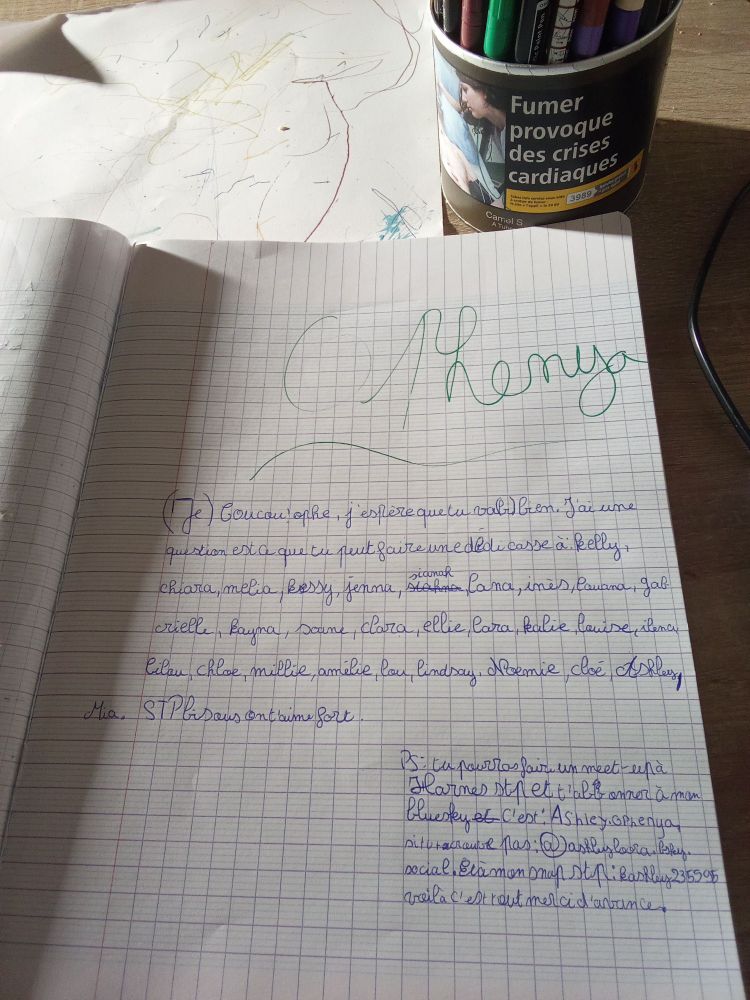 Fumer
provoque
des crises
cardiaques
3989
Camel S
Ophenya
(Je) Coucou ophe, j'espère que tu va(b) bien. J'ai une
question est a que tu peut faire une dédi casse à: kelly,
chiara, melia, kessy, jenna, sianah lana, inès, louana, gab
rielle, kayna, soune, clara, ellie, lara, kalie, louise, ilency
lilou, chloe, millie, amélie, lou, lindsay, Noemie, cloé, Ashley,
Mia. STP bisous ont taime fort.
PS: tu pourras fair un meet-up à
Harnes stp et t'abbonner à mon
bluesky et c'est: Ashley.ophenya,
si tu trouve pas: @ashleyloora.bsky.
social. Et à mon snap stp: kashley235595
voilà c'est tout merci d'avance.